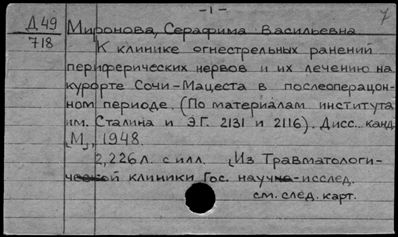 -1-
7
Д 49
718
Миронова, Серафима Васильевна
К клинике огнестрельных ранений
периферических нервов и их лечению на
курорте Сочи-Мацеста в послеоперацон-
ном периоде. (По материалам института
им. Сталина и Э.Г. 2131 и 2116). Дисс. канд.
[М.], 1948.
2,226 л. с илл. [Из Травматологи-
ческой клиники Гос. научн-исслед.
см. след. карт.